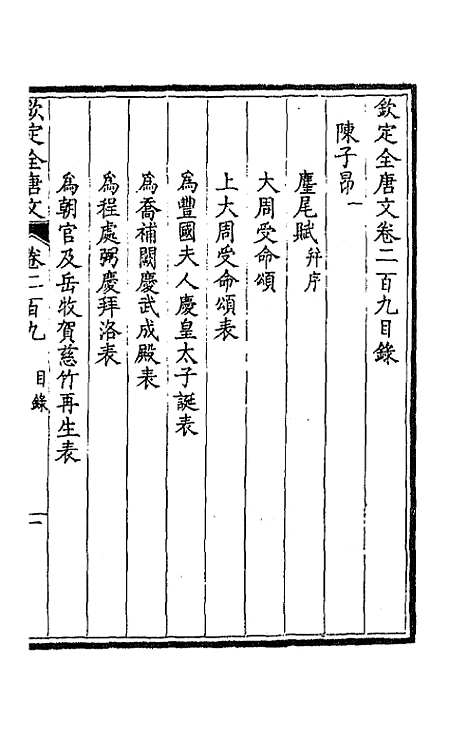 欽定全唐文卷二百九目錄
陳子昂一
麈尾賦幷序
大周受命頌
上大周受命頌表
為豐國夫人慶皇太子誕表
為喬補闕慶武成殿表
為程處弼慶拜洛表
為朝官及岳牧賀慈竹再生表
欽定全唐文 卷二百九 目錄 一